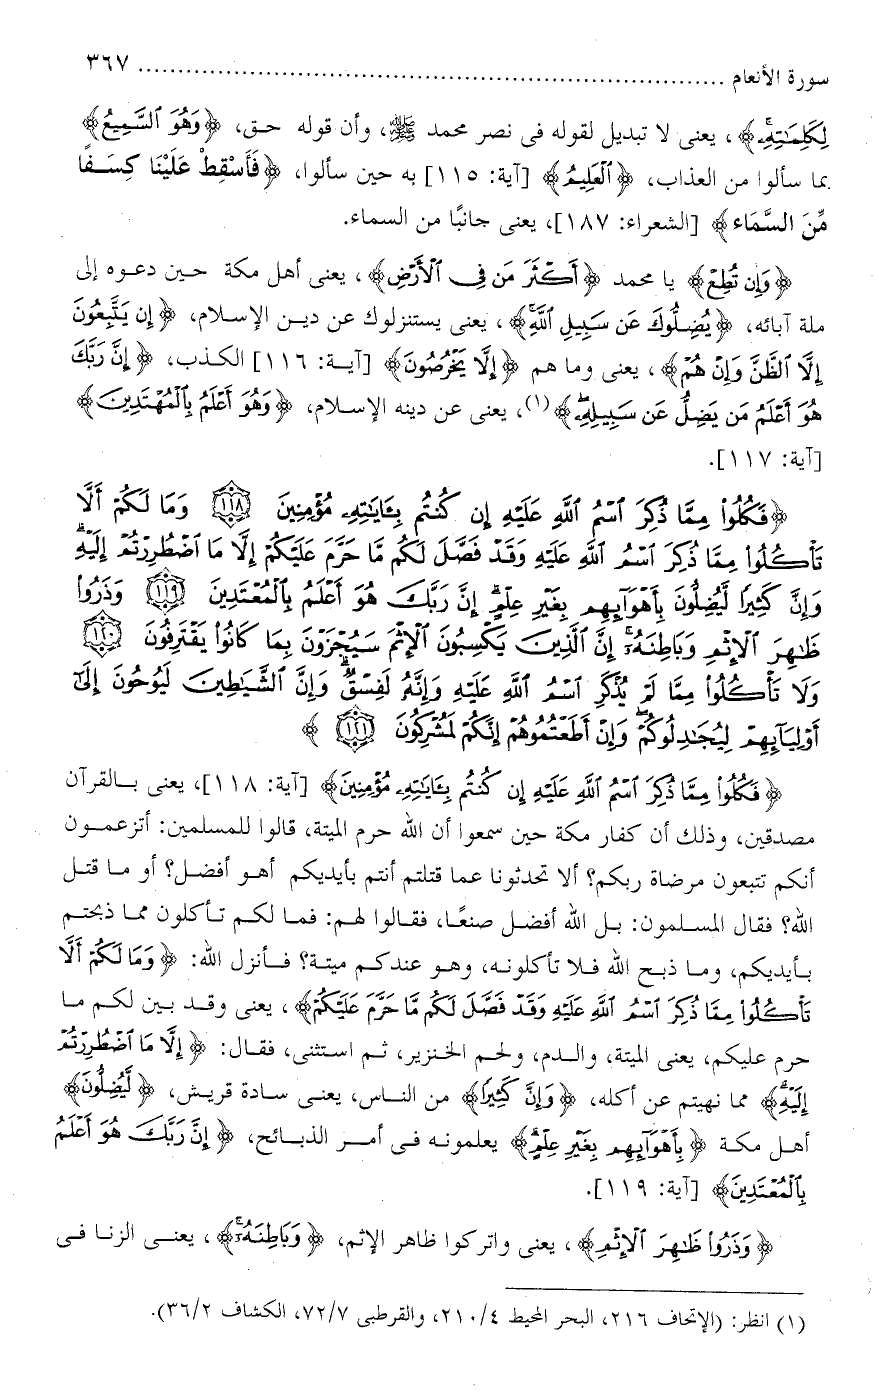 سورة الأنعام ........................................................................ ٣٦٧
لِكَلِمَاتِهِ﴾، يعنى لا تبديل لقوله فى نصر محمد ﷺ، وأن قوله حق، ﴿وَهُوَ السَّمِيعُ﴾
بما سألوا من العذاب، ﴿الْعَلِيمُ﴾ [آية: ١١٥] به حين سألوا، ﴿فَأَسْقِطْ عَلَيْنَا كِسَفًا
مِّنَ السَّمَاء﴾ [الشعراء: ١٨٧]، يعنى جانبًا من السماء.
﴿وَإِن تُطِعْ﴾ يا محمد ﴿أَكْثَرَ مَن فِى الْأَرْضِ﴾، يعنى أهل مكة حين دعوه إلى
ملة آبائه، ﴿يُضِلُّوكَ عَن سَبِيلِ اللَّهِ﴾، يعنى يستنزلوك عن دين الإسلام، ﴿إِن يَتَّبِعُونَ
إِلَّا الظَّنَّ وَإِنْ هُمْ﴾، يعنى وما هم ﴿إِلَّا يَخْرُصُونَ﴾ [آية: ١١٦] الكذب، ﴿إِنَّ رَبَّكَ
هُوَ أَعْلَمُ مَن يَضِلُّ عَن سَبِيلِهِ﴾(١)، يعنى عن دينه الإسلام، ﴿وَهُوَ أَعْلَمُ بِالْمُهْتَدِينَ﴾
[آية: ١١٧].
﴿فَكُلُوا مِمَّا ذُكِرَ اسْمُ اللَّهِ عَلَيْهِ إِن كُنتُم بِـَٔايَاتِهِ مُؤْمِنِينَ ١١٨ وَمَا لَكُمْ أَلَّا
تَأْكُلُوا مِمَّا ذُكِرَ اسْمُ اللَّهِ عَلَيْهِ وَقَدْ فَصَّلَ لَكُم مَّا حَرَّمَ عَلَيْكُمْ إِلَّا مَا اضْطُرِرْتُمْ إِلَيْهِ
وَإِنَّ كَثِيرًا لَّيُضِلُّونَ بِأَهْوَائِهِم بِغَيْرِ عِلْمٍ إِنَّ رَبَّكَ هُوَ أَعْلَمُ بِالْمُعْتَدِينَ ١١٩ وَذَرُوا
ظَاهِرَ الْإِثْمِ وَبَاطِنَهُ إِنَّ الَّذِينَ يَكْسِبُونَ الْإِثْمَ سَيُجْزَوْنَ بِمَا كَانُوا يَقْتَرِفُونَ ١٢٠
وَلَا تَأْكُلُوا مِمَّا لَمْ يُذْكَرِ اسْمُ اللَّهِ عَلَيْهِ وَإِنَّهُ لَفِسْقٌ وَإِنَّ الشَّيَاطِينَ لَيُوحُونَ إِلَى
أَوْلِيَائِهِمْ لِيُجَادِلُوكُمْ وَإِنْ أَطَعْتُمُوهُمْ إِنَّكُمْ لَمُشْرِكُونَ ١٢١﴾
﴿فَكُلُوا مِمَّا ذُكِرَ اسْمُ اللَّهِ عَلَيْهِ إِن كُنتُم بِـَٔايَاتِهِ مُؤْمِنِينَ﴾ [آية: ١١٨]، يعنى بالقرآن
مصدقين، وذلك أن كفار مكة حين سمعوا أن الله حرم الميتة، قالوا للمسلمين: أتزعمون
أنكم تتبعون مرضاة ربكم؟ ألا تحدثونا عما قتلتم أنتم بأيديكم أهو أفضل؟ أو ما قتل
الله؟ فقال المسلمون: بل الله أفضل صنعًا، فقالوا لهم: فما لكم تأكلون مما ذبحتم
بأيديكم، وما ذبح الله فلا تأكلونه، وهو عندكم ميتة؟ فأنزل الله: ﴿وَمَا لَكُمْ أَلَّا
تَأْكُلُوا مِمَّا ذُكِرَ اسْمُ اللَّهِ عَلَيْهِ وَقَدْ فَصَّلَ لَكُم مَّا حَرَّمَ عَلَيْكُمْ﴾، يعنى وقد بين لكم ما
حرم عليكم، يعنى الميتة، والدم، ولحم الخنزير، ثم استثنى، فقال: ﴿إِلَّا مَا اضْطُرِرْتُمْ
إِلَيْهِ﴾ مما نهيتم عن أكله، ﴿وَإِنَّ كَثِيرًا﴾ من الناس، يعنى سادة قريش، ﴿لَّيُضِلُّونَ﴾
أهل مكة ﴿بِأَهْوَائِهِم بِغَيْرِ عِلْمٍ﴾ يعلمونه فى أمر الذبائح، ﴿إِنَّ رَبَّكَ هُوَ أَعْلَمُ
بِالْمُعْتَدِينَ﴾ [آية: ١١٩].
﴿وَذَرُوا ظَاهِرَ الْإِثْمِ﴾، يعنى واتركوا ظاهر الإثم، ﴿وَبَاطِنَهُ﴾، يعنى الزنا فى
(١) انظر: (الإتحاف ٢١٦، البحر المحيط ٢١٠/٤، والقرطبى ٧٢/٧، الكشاف ٣٦/٢).